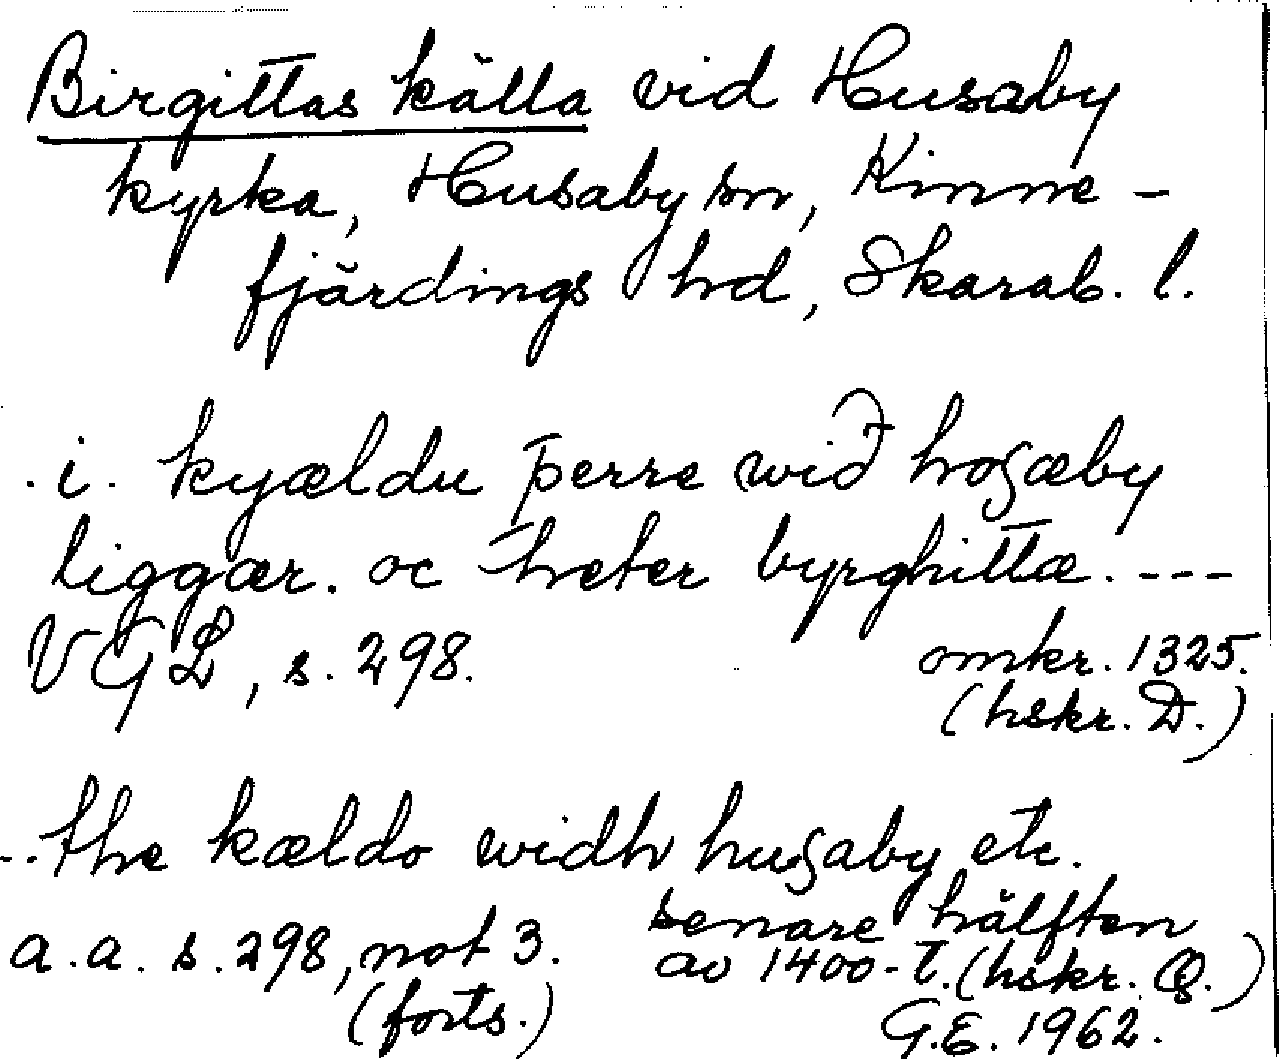 Birgittas källa vid Husaby
kyrka, Husaby sn, Kinne-
fjärdings hd, Skarab. l.
. i. kyældu þerre wið hosæby
liggær. oc heter byrghittæ. ---
VGL, s. 298. omkr. 1325.
(hskr. D.)
.. the kældo widh husaby etc.
a.a. s. 298, not 3. senare hälften
av 1400-t. (hskr. Q.)
(forts.) G.E. 1962.